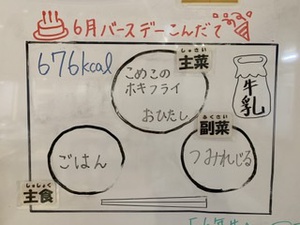 6月バースデーこんだて
676kcal
しゅさい
主菜
こめこの
ホキフライ
おひたし
牛乳
ふくさい
副菜
ごはん
つみれじる
しゅしょく
主食